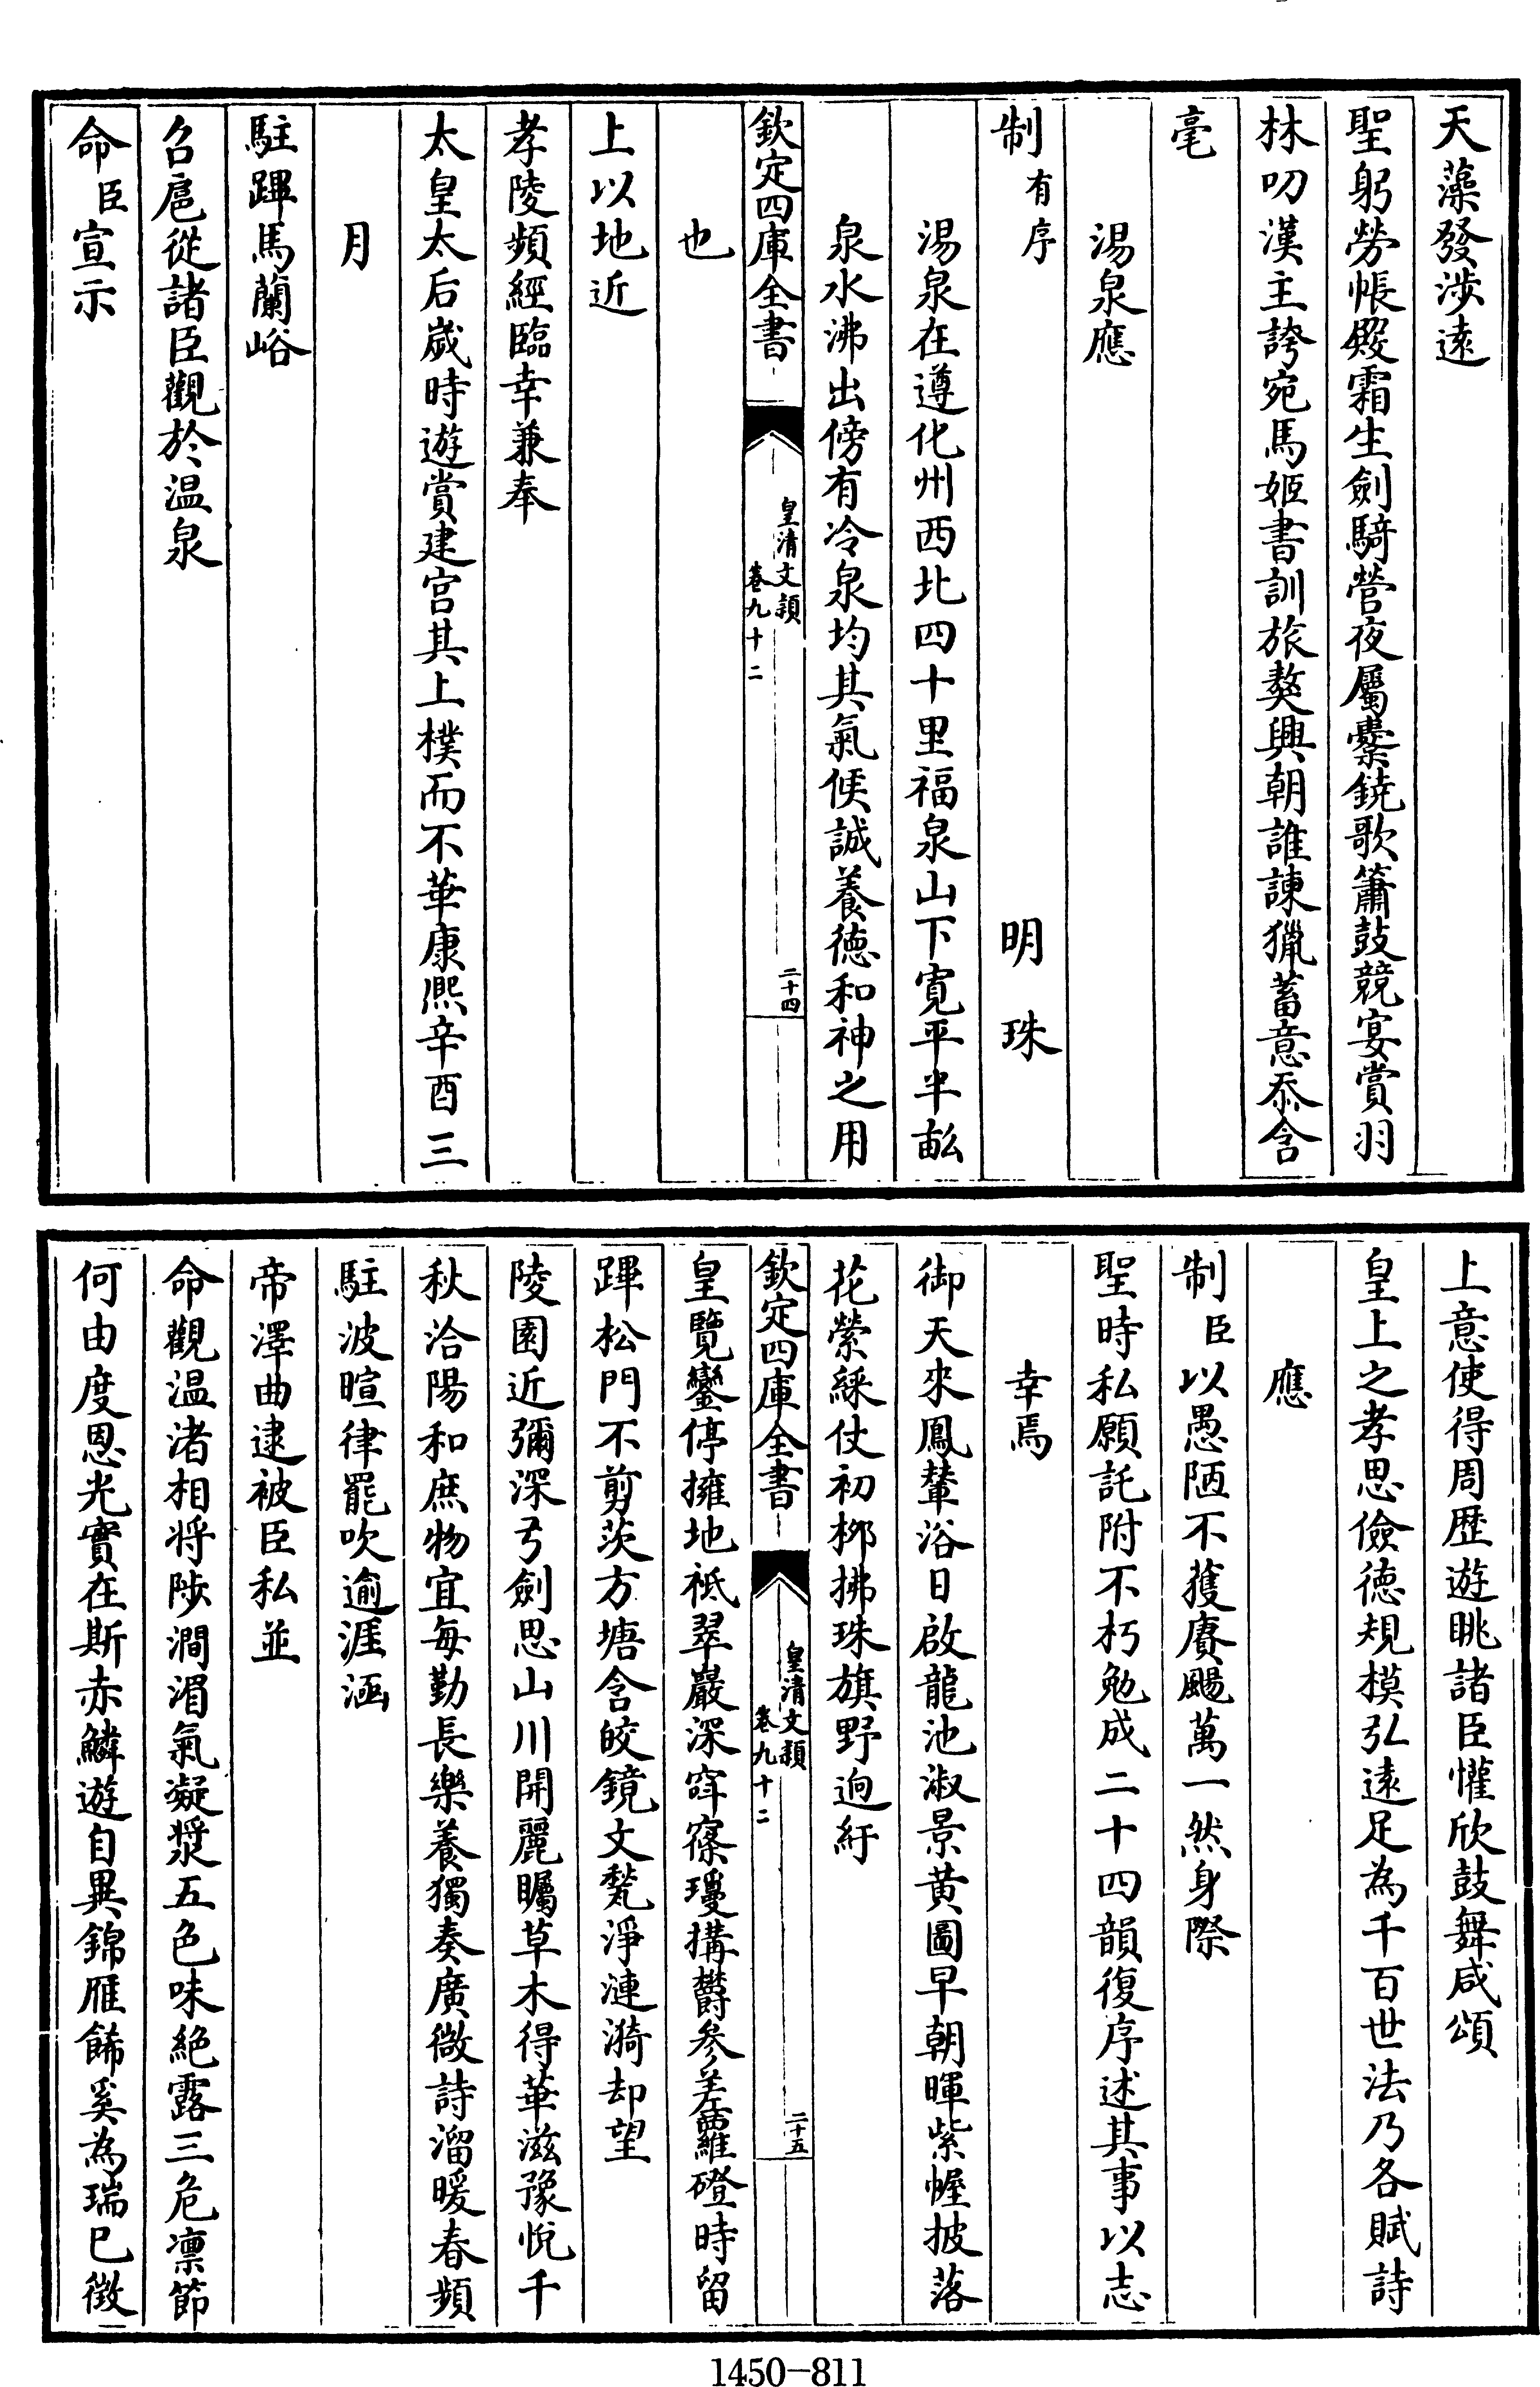 天藻發渉遠
聖躬勞帳殿霜生劍騎營夜屬櫜鐃歌簫鼓競宴賞羽
林叨漢主誇宛馬姬書訓旅獒興朝誰諫獵蓄意忝含
毫
湯泉應
制有序 明珠
湯泉在遵化州西北四十里福泉山下寛平半畝
泉水沸出傍有冷泉均其氣候誠養德和神之用
欽定四庫全書 皇清文頴 卷九十二 二十四
也
上以地近
孝陵頻經臨幸兼奉
太皇太后歲時遊賞建宫其上樸而不華康熙辛酉三
月
駐蹕馬蘭峪
召扈從諸臣觀於温泉
命臣宣示
上意使得周歴遊眺諸臣懽欣鼓舞咸頌
皇上之孝思儉德規模弘遠足為千百世法乃各賦詩
應
制臣以愚陋不獲賡颺萬一然身際
聖時私願託附不朽勉成二十四韻復序述其事以志
幸焉
御天來鳳輦浴日啟龍池淑景黄圖早朝暉紫幄披落
花縈綵仗初栁拂珠旗野逈紆
欽定四庫全書 皇清文頴 卷九十二 二十五
皇覽鑾停擁地祗翠巖深窅窱瓊搆欝參差蘿磴時留
蹕松門不剪茨方塘含皎鏡文甃淨漣漪却望
陵園近彌深弓劍思山川開麗矚草木得華滋豫悦千
秋洽陽和庶物宜每勤長樂養獨奏廣微詩溜暖春頻
駐波暄律罷吹逾涯涵
帝澤曲逮被臣私並
命觀温渚相將陟澗湄氣凝漿五色味絶露三危凛節
何由度恩光實在斯赤鱗遊自異錦雁餙奚為瑞巳徴
1450-811